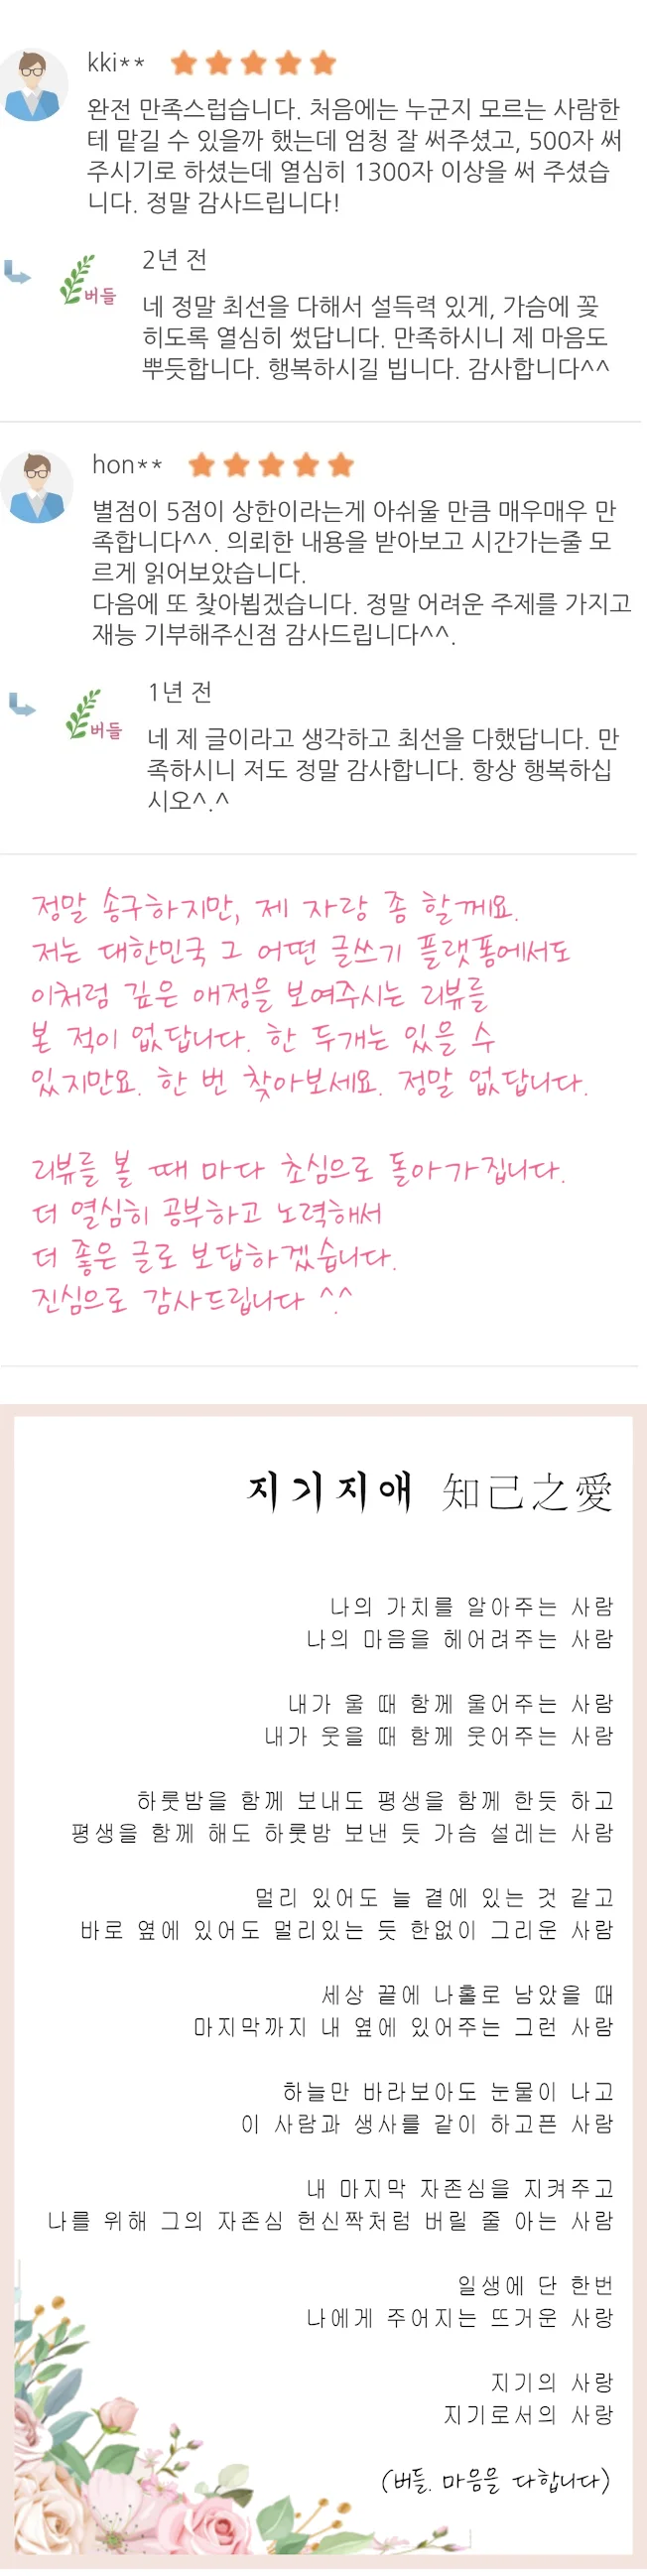 kki**
완전 만족스럽습니다. 처음에는 누군지 모르는 사람한
테 맡길 수 있을까 했는데 엄청 잘 써주셨고, 500자 써
주시기로 하셨는데 열심히 1300자 이상을 써 주셨습
니다. 정말 감사드립니다!
버들
2년 전
네 정말 최선을 다해서 설득력 있게, 가슴에 꽂
히도록 열심히 썼답니다. 만족하시니 제 마음도
뿌듯합니다. 행복하시길 빕니다. 감사합니다^^
hon**
별점이 5점이 상한이라는게 아쉬울 만큼 매우매우 만
족합니다^^. 의뢰한 내용을 받아보고 시간가는줄 모
르게 읽어보았습니다.
다음에 또 찾아뵙겠습니다. 정말 어려운 주제를 가지고
재능 기부해주신점 감사드립니다^^.
버들
1년 전
네 제 글이라고 생각하고 최선을 다했답니다. 만
족하시니 저도 정말 감사합니다. 항상 행복하십
시오^.^
정말 송구하지만, 제 자랑 좀 할께요.
저는 대한민국 그 어떤 글쓰기 플랫폼에서도
이처럼 깊은 애정을 보여주시는 리뷰를
본 적이 없답니다. 한 두개는 있을 수
있지만요. 한 번 찾아보세요. 정말 없답니다.
리뷰를 볼 때 마다 초심으로 돌아가집니다.
더 열심히 공부하고 노력해서
더 좋은 글로 보답하겠습니다.
진심으로 감사드립니다 ^.^
지기지애 知己之愛
나의 가치를 알아주는 사람
나의 마음을 헤어려주는 사람
내가 울 때 함께 울어주는 사람
내가 웃을 때 함께 웃어주는 사람
하룻밤을 함께 보내도 평생을 함께 한듯 하고
평생을 함께 해도 하룻밤 보낸 듯 가슴 설레는 사람
멀리 있어도 늘 곁에 있는 것 같고
바로 옆에 있어도 멀리있는 듯 한없이 그리운 사람
세상 끝에 나홀로 남았을 때
마지막까지 내 옆에 있어주는 그런 사람
하늘만 바라보아도 눈물이 나고
이 사람과 생사를 같이 하고픈 사람
내 마지막 자존심을 지켜주고
나를 위해 그의 자존심 헌신짝처럼 버릴 줄 아는 사람
일생에 단 한번
나에게 주어지는 뜨거운 사랑
지기의 사랑
지기로서의 사랑
(버들. 마음을 다합니다)